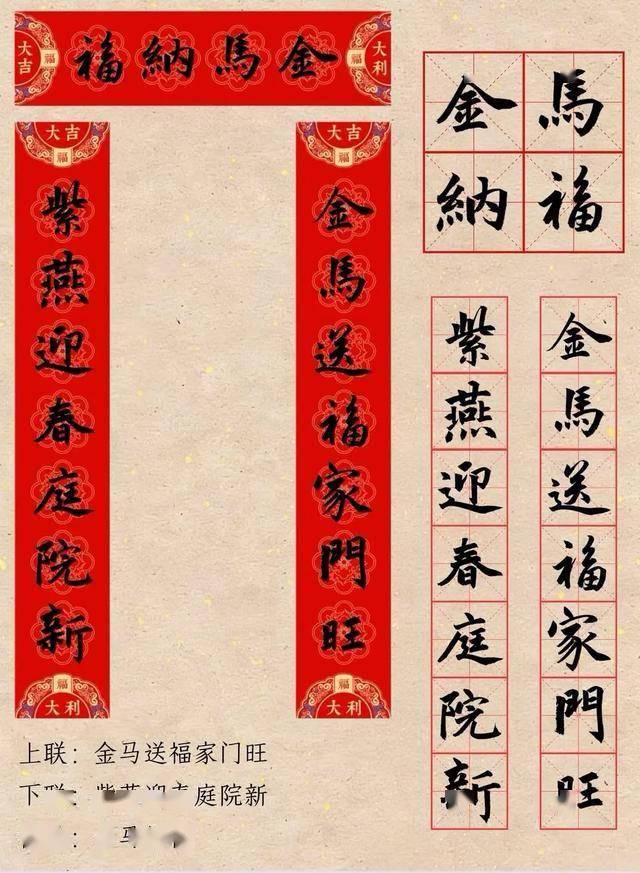 大吉 福
金馬納福
大利 福
大吉 福
金馬送福家門旺
福 大利
大吉 福
紫燕迎春庭院新
福 大利
金馬
納福
金馬送福家門旺
紫燕迎春庭院新
上联：金马送福家门旺
下联：庭院新